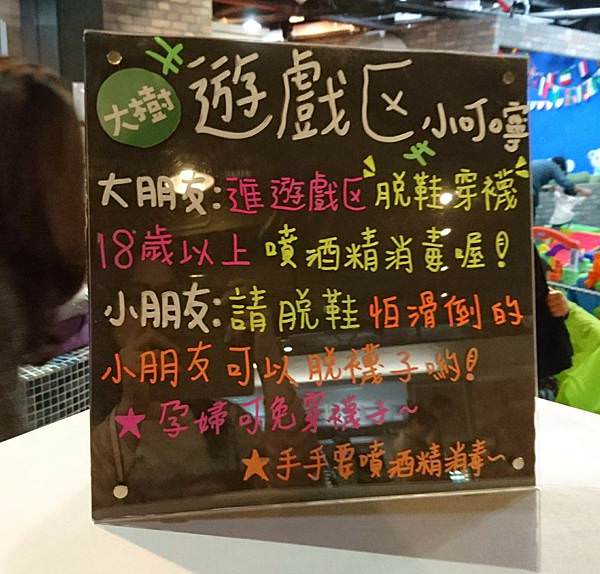 大樹 遊戲区 小叮嚀
大朋友:進遊戲区脫鞋穿襪
18歲以上 噴酒精消毒喔!
小朋友:請脫鞋 怕滑倒的
小朋友可以脫襪子喲!
★孕婦可免穿襪子~
★手手要噴酒精消毒~